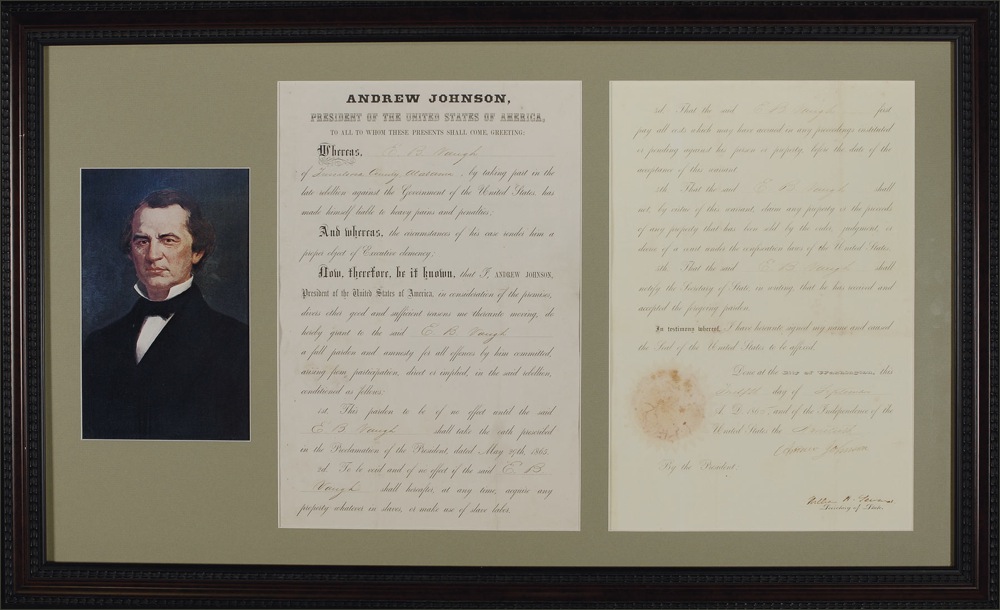 ANDREW JOHNSON,
PRESIDENT OF THE UNITED STATES OF AMERICA,
TO ALL TO WHOM THESE PRESENTS SHALL COME, GREETING:
Whereas, E. B. Vaugh
of County Alabama, by taking part in the
late rebellion against the Government of the United States, has
made himself liable to heavy pains and penalties;
And whereas, the circumstances of his case render him a
proper object of Executive clemency;
Now, therefore, be it known, that I, ANDREW JOHNSON,
President of the United States of America, in consideration of the premises,
divers other good and sufficient reasons me thereunto moving, do
hereby grant to the said E B Vaugh
a full pardon and amnesty for all offences by him committed,
arising from participation, direct or implied, in the said rebellion,
conditioned as follows:
1st. This pardon to be of no effect until the said
E B Vaugh shall take the oath prescribed
in the Proclamation of the President, dated May 29th, 1865.
2d. To be void and of no effect if the said E B
Vaugh shall hereafter, at any time, acquire any
property whatever in slaves, or make use of slave labor.
3d. That the said E B Vaugh first
pay all costs which may have accrued in any proceedings instituted
or pending against his person or property, before the date of the
acceptance of this warrant.
4th. That the said E B Vaugh shall
not, by virtue of this warrant, claim any property or the proceeds
of any property that has been sold by the order, judgment, or
decree of a court under the confiscation laws of the United States.
5th. That the said E B Vaug shall
notify the Secretary of State, in writing, that he has received and
accepted the foregoing pardon.
In testimony whereof, I have hereunto signed my name and caused
the Seal of the United States to be affixed.
Done at the CITY OF WASHINGTON, this
day of
A. D. 186 and of the Independence of the
United States the
Andrew Johnson
By the President:
William H. Seward
Secretary of State.